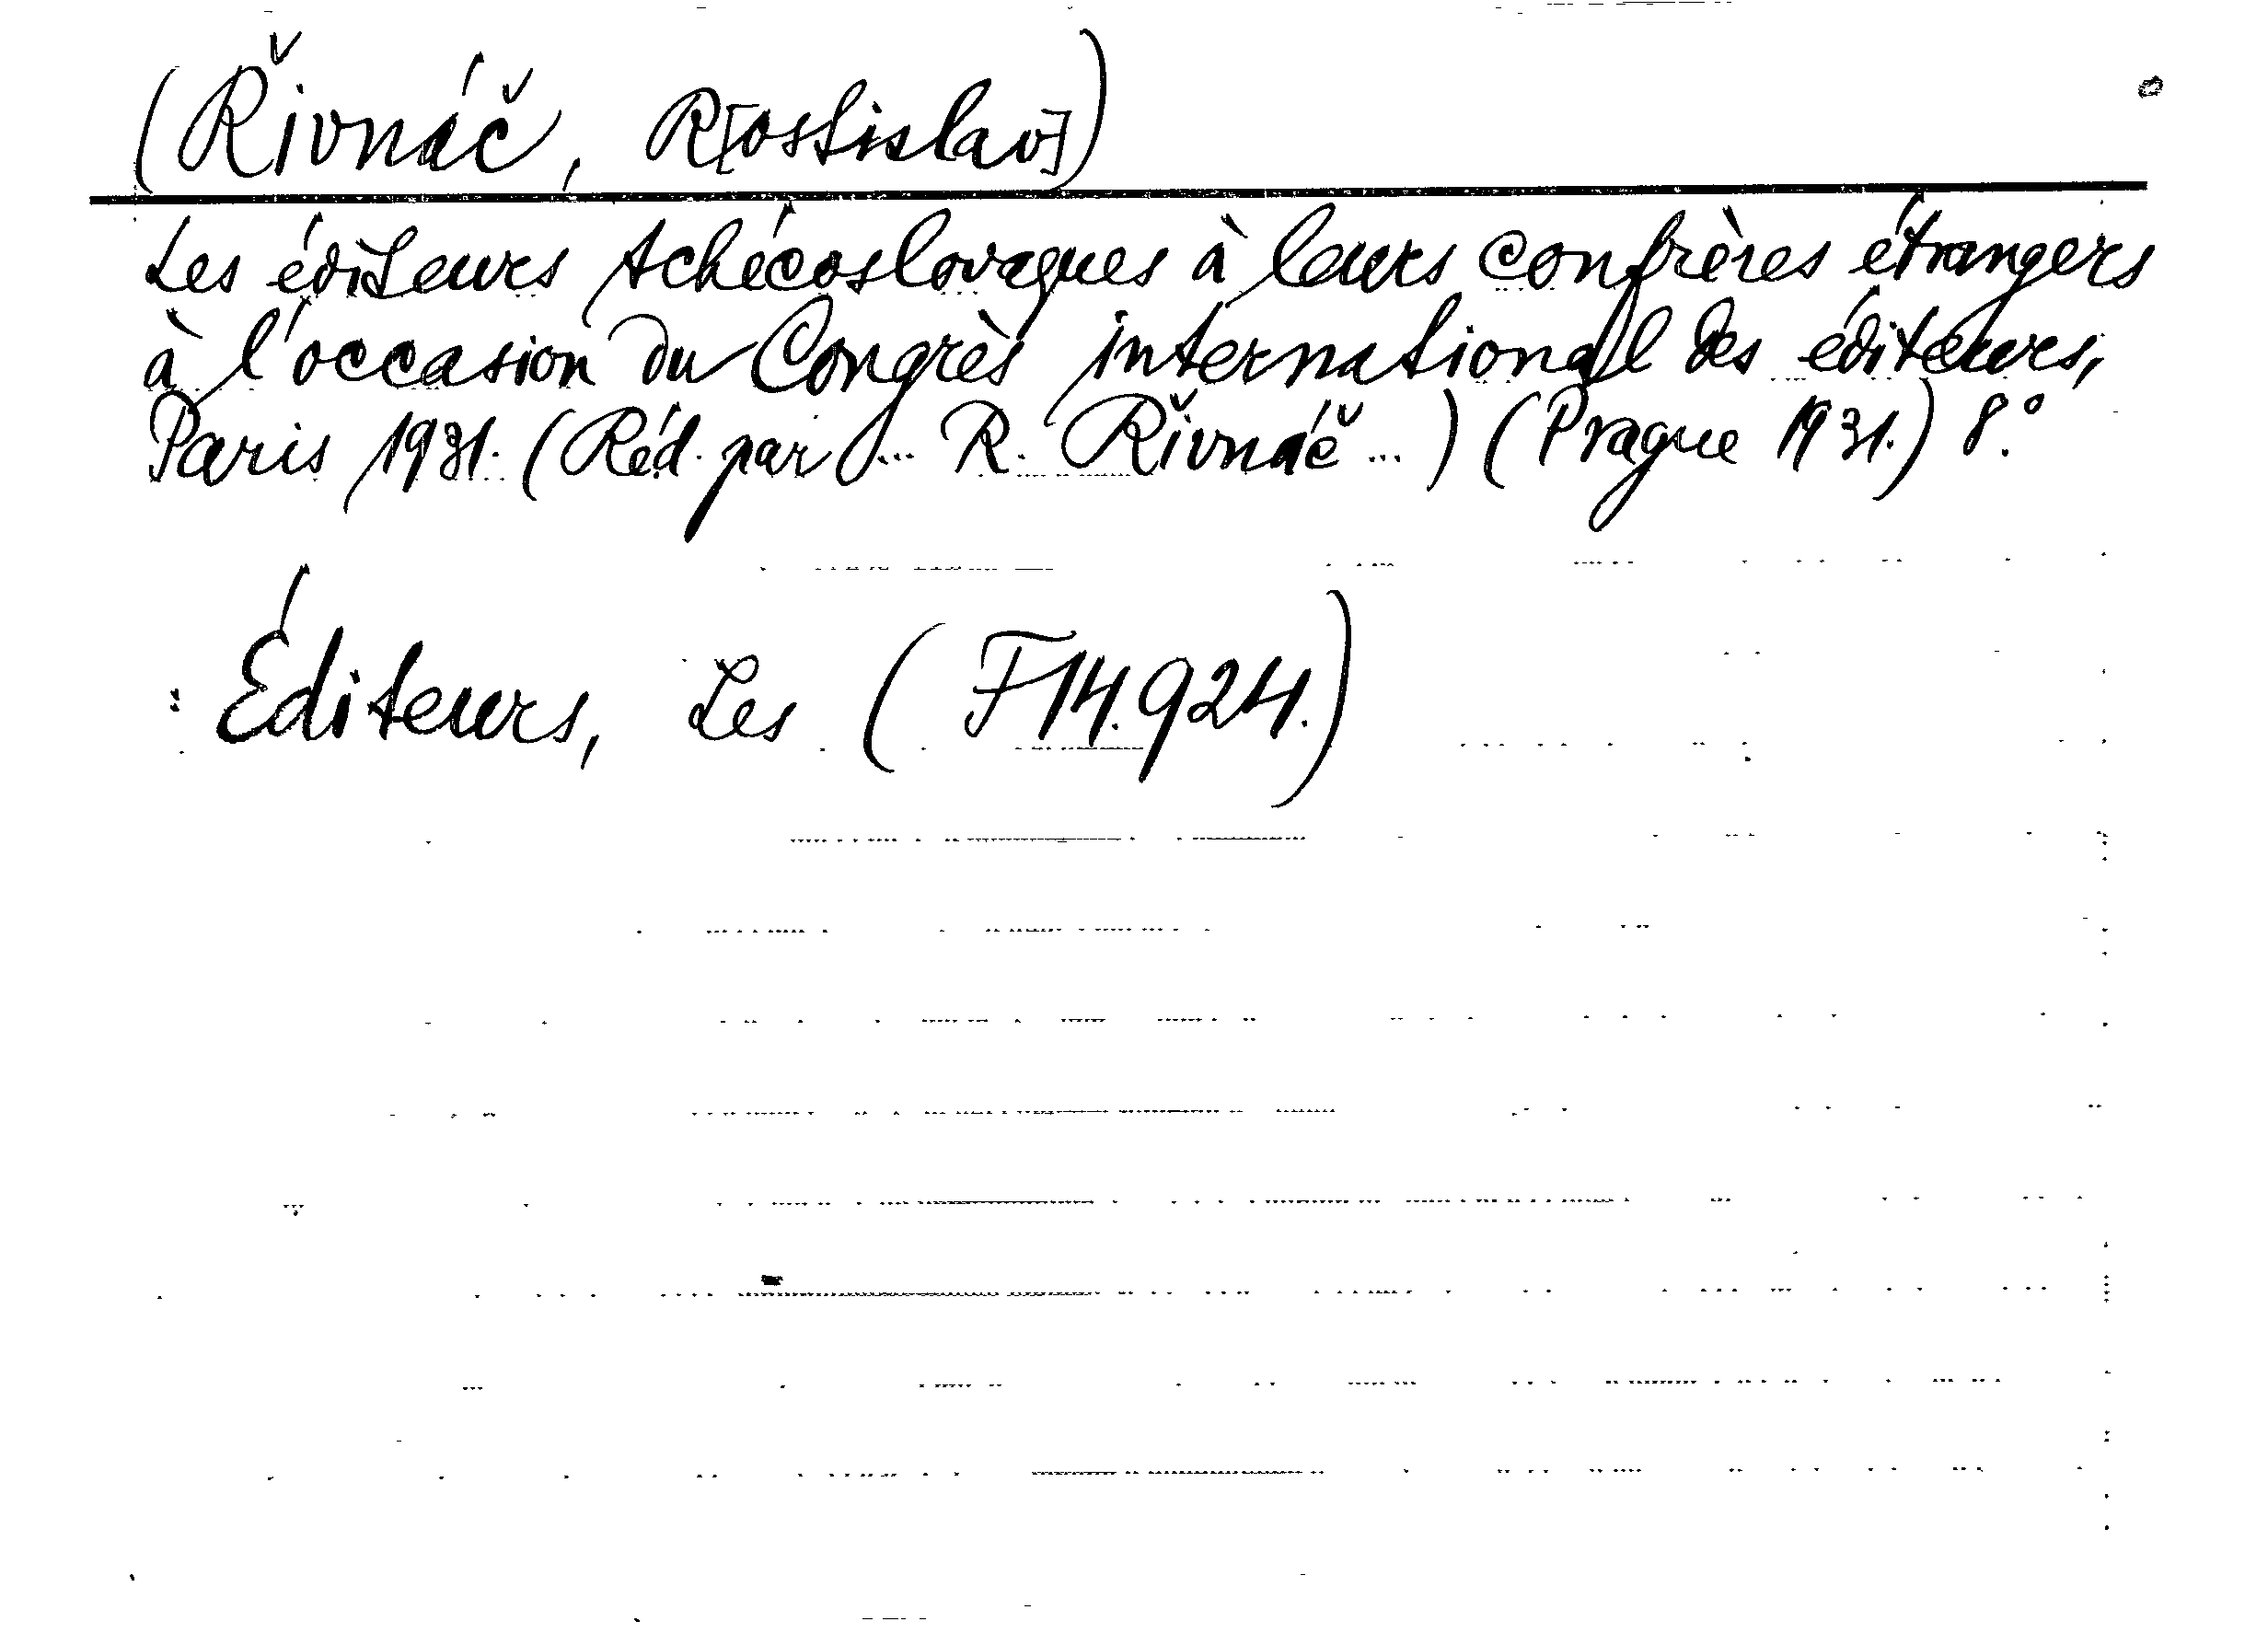 (Řivnáč, R[ostislav])
Les éditeurs tchécoslovaques à leurs confrères étrangers
à l'occasion du Congrès international des éditeurs,
Paris 1931. (Réd. par ... R. Řivnáč ...) (Prague 1931.) 8°.
: Éditeurs, Les (F14.924.)